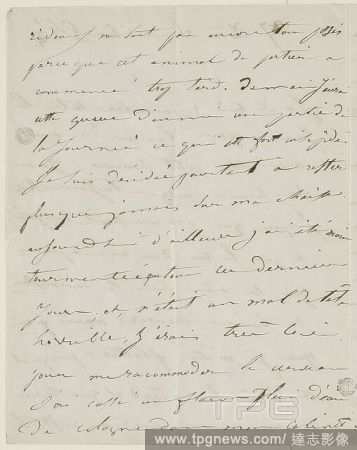 rideaux ne sont pas encore tous posés
parce que cet animal de portier a
commencé trop tard. demain j'aurai
cette queue d'ennui une partie de
la journée ce qui est fort
Je suis décidée pourtant a rester
plus que jamais sur ma chaise.
aujourdhui d'ailleurs j'ai été moins
tourmentée qu'en ces derniers
jours, et, n'était un mal de tête
horrible, j'étais très bien.
pour me racommoder le cerveau
j'ai cassé un flacon plein d'eau
de cologne dans mon cabinet
TPG
www.tpgnews.com/達志影像